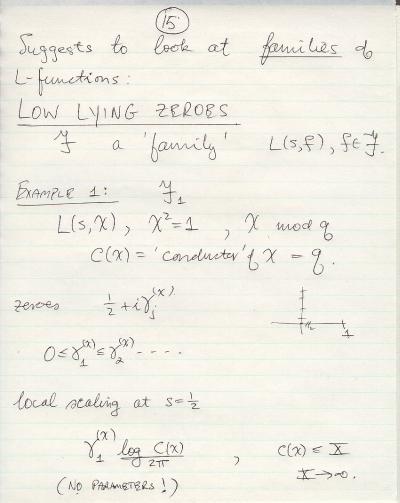 15
Suggests to look at families of
L-functions:
LOW LYING ZEROES
ℱ a 'family' L(s,f), f∈ℱ.
EXAMPLE 1: ℱ₁
L(s,χ), χ²=1, χ mod q
C(χ) = 'conductor' of χ = q.
zeroes ½+iγ_j^(χ)
½ 1
0≤γ₁^(χ)≤γ₂^(χ)····
local scaling at s=½
γ₁^(χ) log C(χ)/2π , C(χ) ≤ X
(NO PARAMETERS!) X→∞.